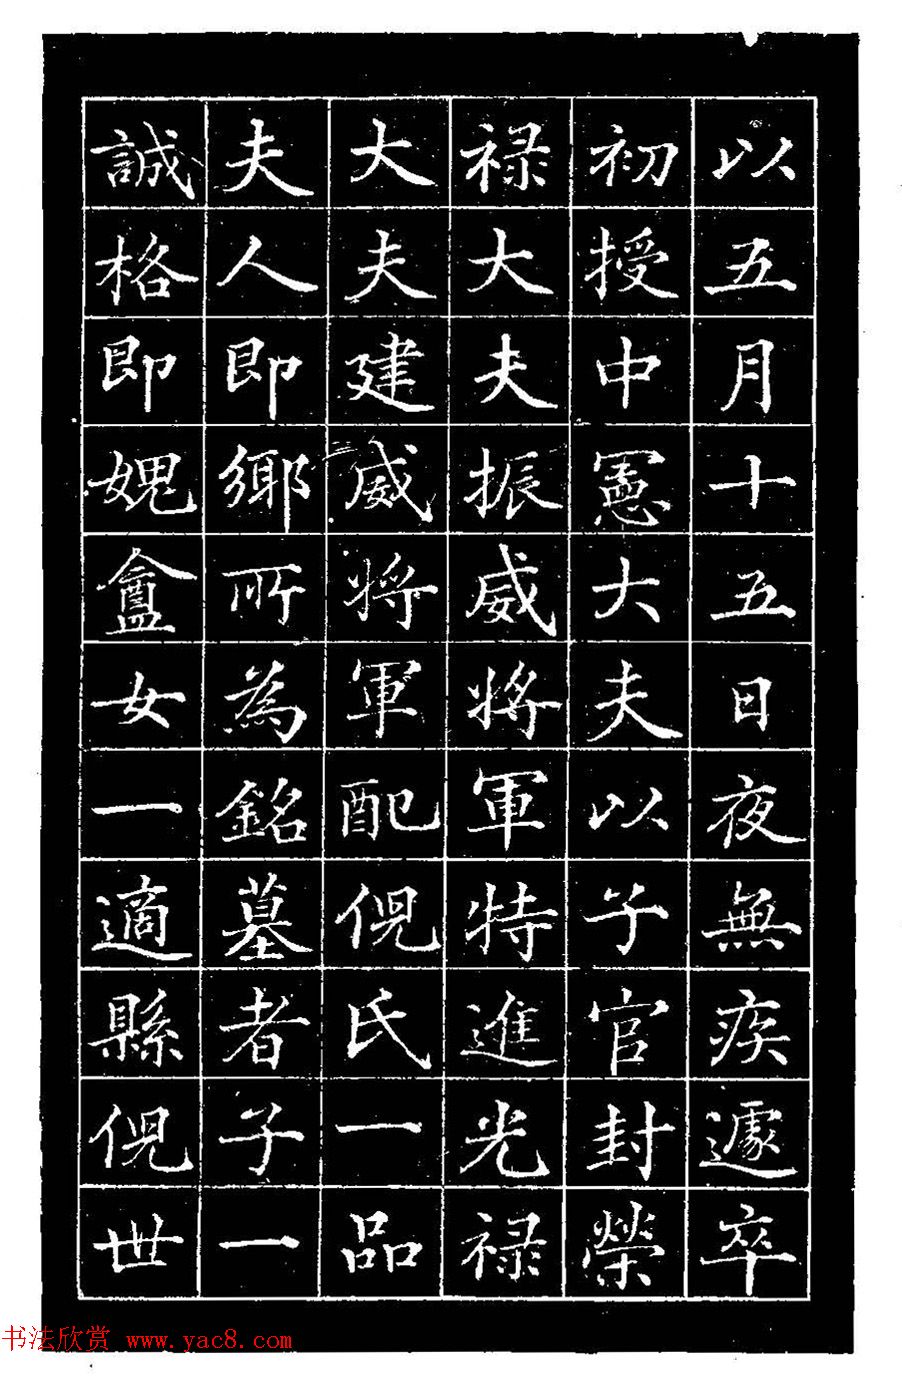 以五月十五日夜無疾遽卒
初授中憲大夫以子官封榮
祿大夫振威將軍特進光祿
大夫建威將軍配倪氏一品
夫人即鄉所為銘墓者子一
誠格即媿盦女一適縣倪世
书法欣赏 www.yac8.com